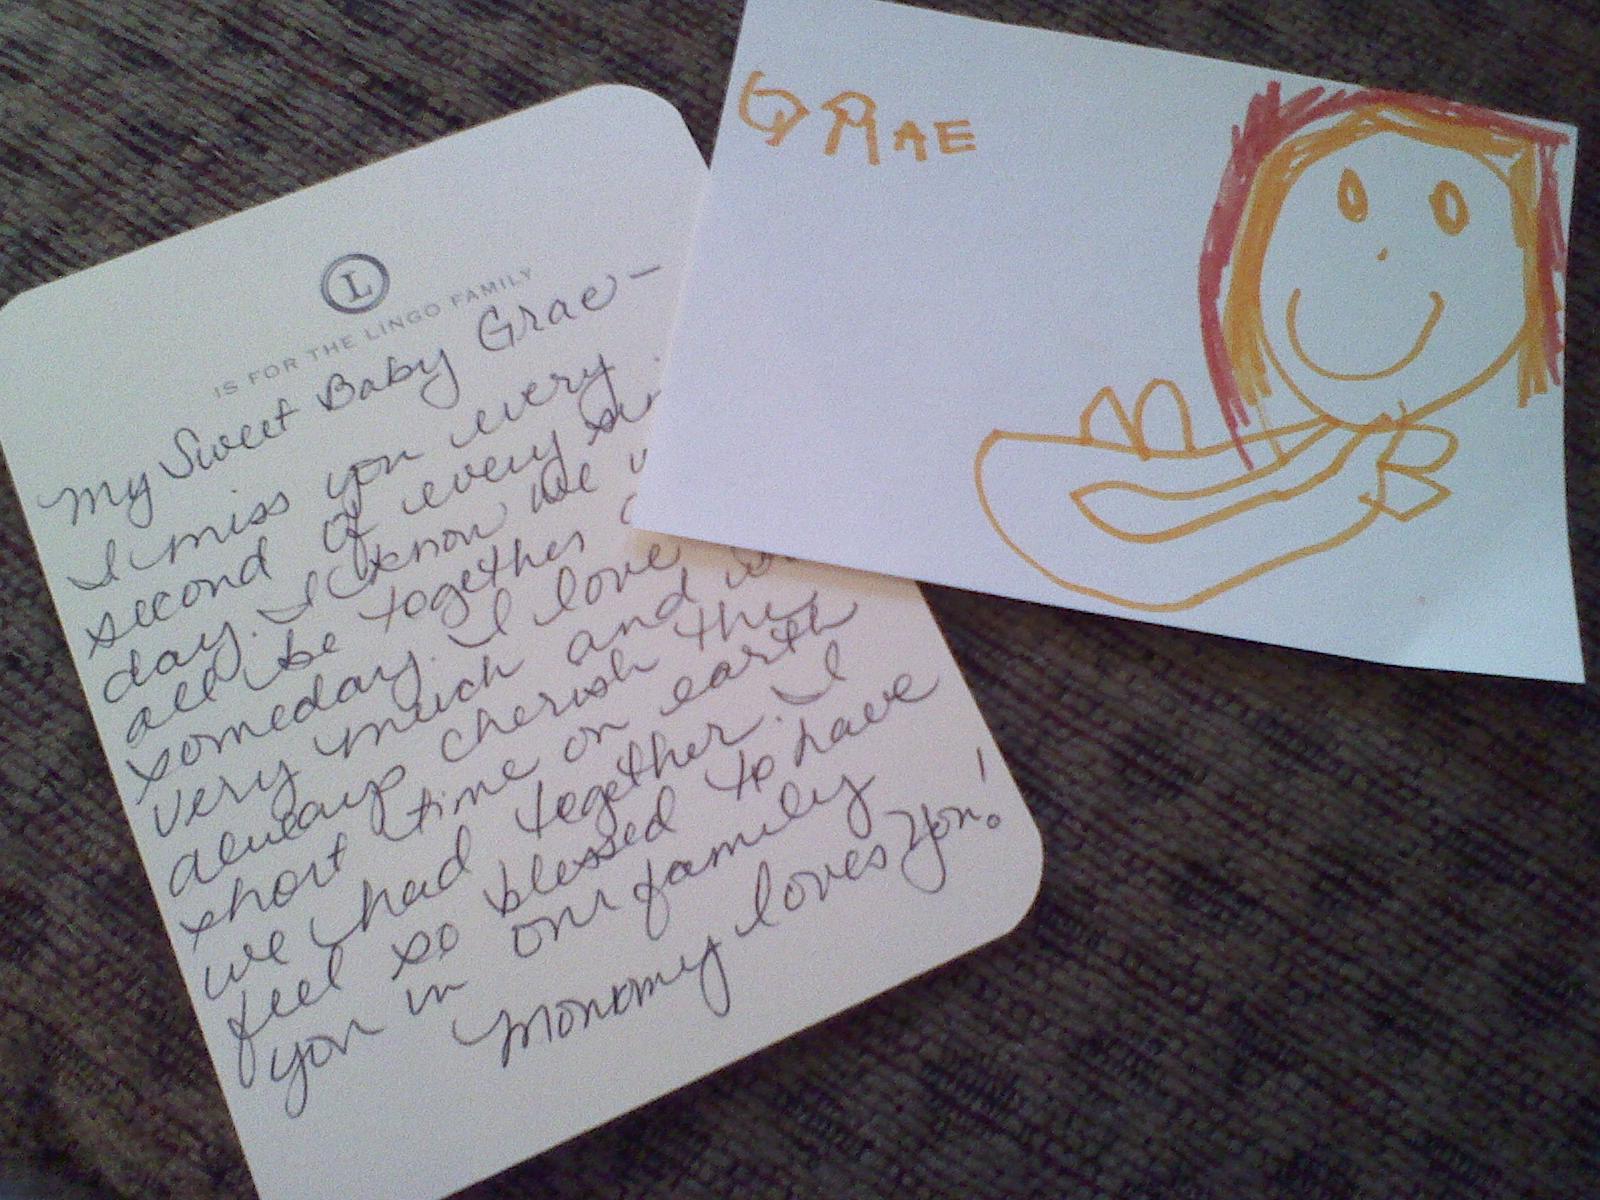 L
IS FOR THE LINGO FAMILY
My Sweet Baby Grae -
I miss you every
second of every
day. I know we
all be together
someday. I love
very much and
always cherish the
short time on earth
we had together. I
feel so blessed to have
you in our family
Mommy loves you!
GRAE